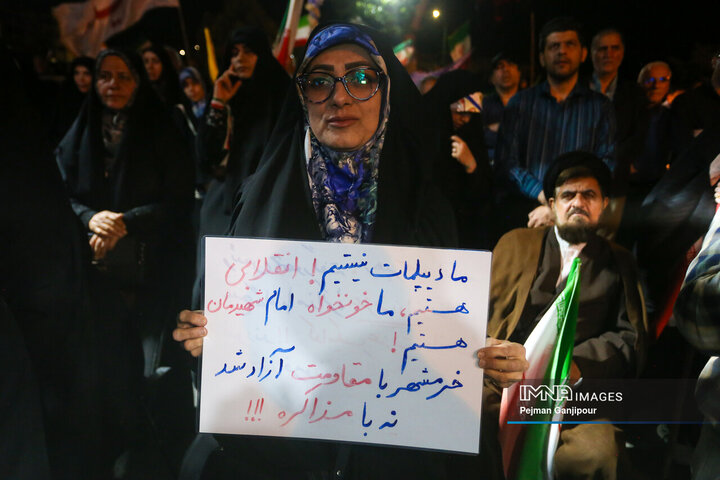 ما دیپلمات نیستیم! انقلابی
هستیم، ما خونخواه امام شهیدمان
هستیم!
خرمشهر با مقاومت آزاد شد
نه با مذاکره!!!
IMNA IMAGES
Pejman Ganjipour